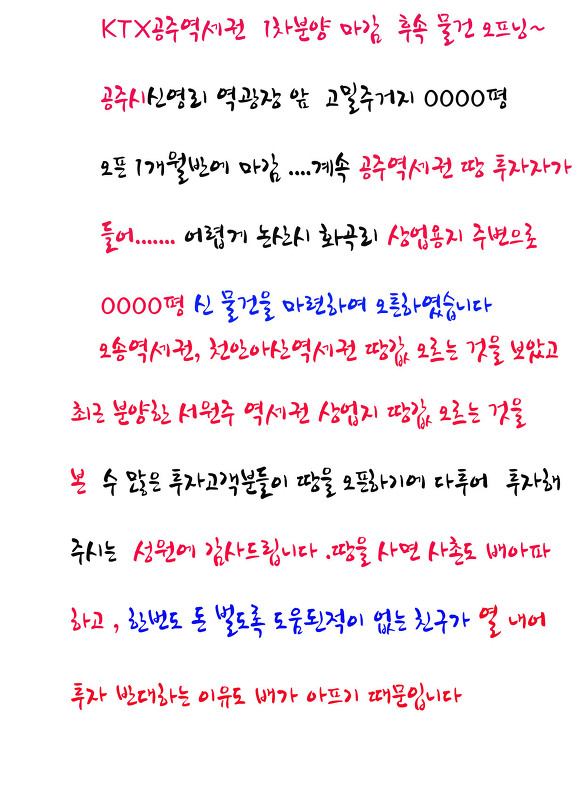 KTX공주역세권 1차분양 마감 후속 물건 오프닝~
공주시신영리 역광장 앞 고밀주거지 0000평
오픈 1개월반에 마감 ....계속 공주역세권 땅 투자자가
들어....... 어렵게 논산시 화곡리 상업용지 주변으로
0000평 신 물건을 마련하여 오픈하였습니다
오송역세권, 천안아산역세권 땅값 오르는 것을 보았고
최근 분양한 서원주 역세권 상업지 땅값 오르는 것을
본 수 많은 투자고객분들이 땅을 오픈하기에 다투어 투자해
주시는 성원에 감사드립니다 .땅을 사면 사촌도 배아파
하고 , 한번도 돈 벌도록 도움된적이 없는 친구가 열 내어
투자 반대하는 이유도 배가 아프기 때문입니다